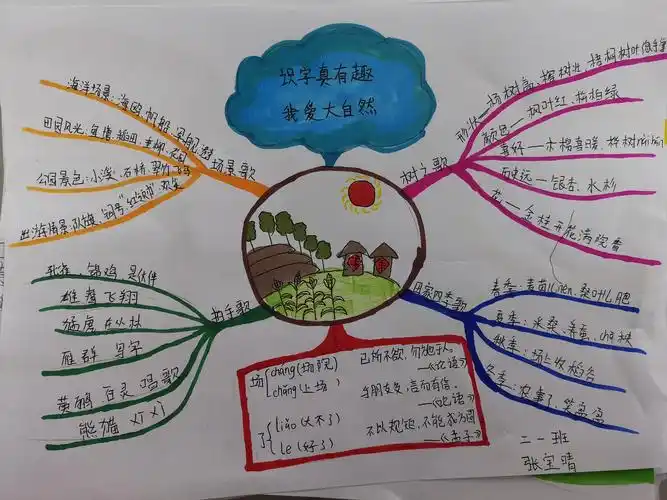 识字真有趣
我爱大自然
场景歌
海洋场景:海鸥,帆船,军舰,港
田园风光:鱼塘,稻田,垂柳,花园
公园景色:小溪,石桥,翠竹,飞鸟
出游场景:队旗,铜号"红领巾"欢笑
树之歌
形状—杨树高,榕树壮,梧桐树叶像手掌
颜色—枫叶红,松柏绿
喜好—木棉喜暖,桦树
历史远—银杏,水杉
花—金桂开花满院香
拍手歌
孔雀,锦鸡 是伙伴
雄鹰 飞翔
猛虎 在山林
雁群 写字
黄鹂 百灵 唱歌
熊猫
田家四季歌
春季:麦苗
夏季:采桑,养蚕,
秋季:场上收稻谷
冬季:农事了,笑盈盈
场
cháng(场院)
chǎng(上场)
了
liǎo(大不了)
le(好了)
己所不欲,勿施于人。
—《论语》
与朋友交,言而有信。
—《论语》
不以规矩,不能成方圆
—《孟子》
二一班
张宝晴